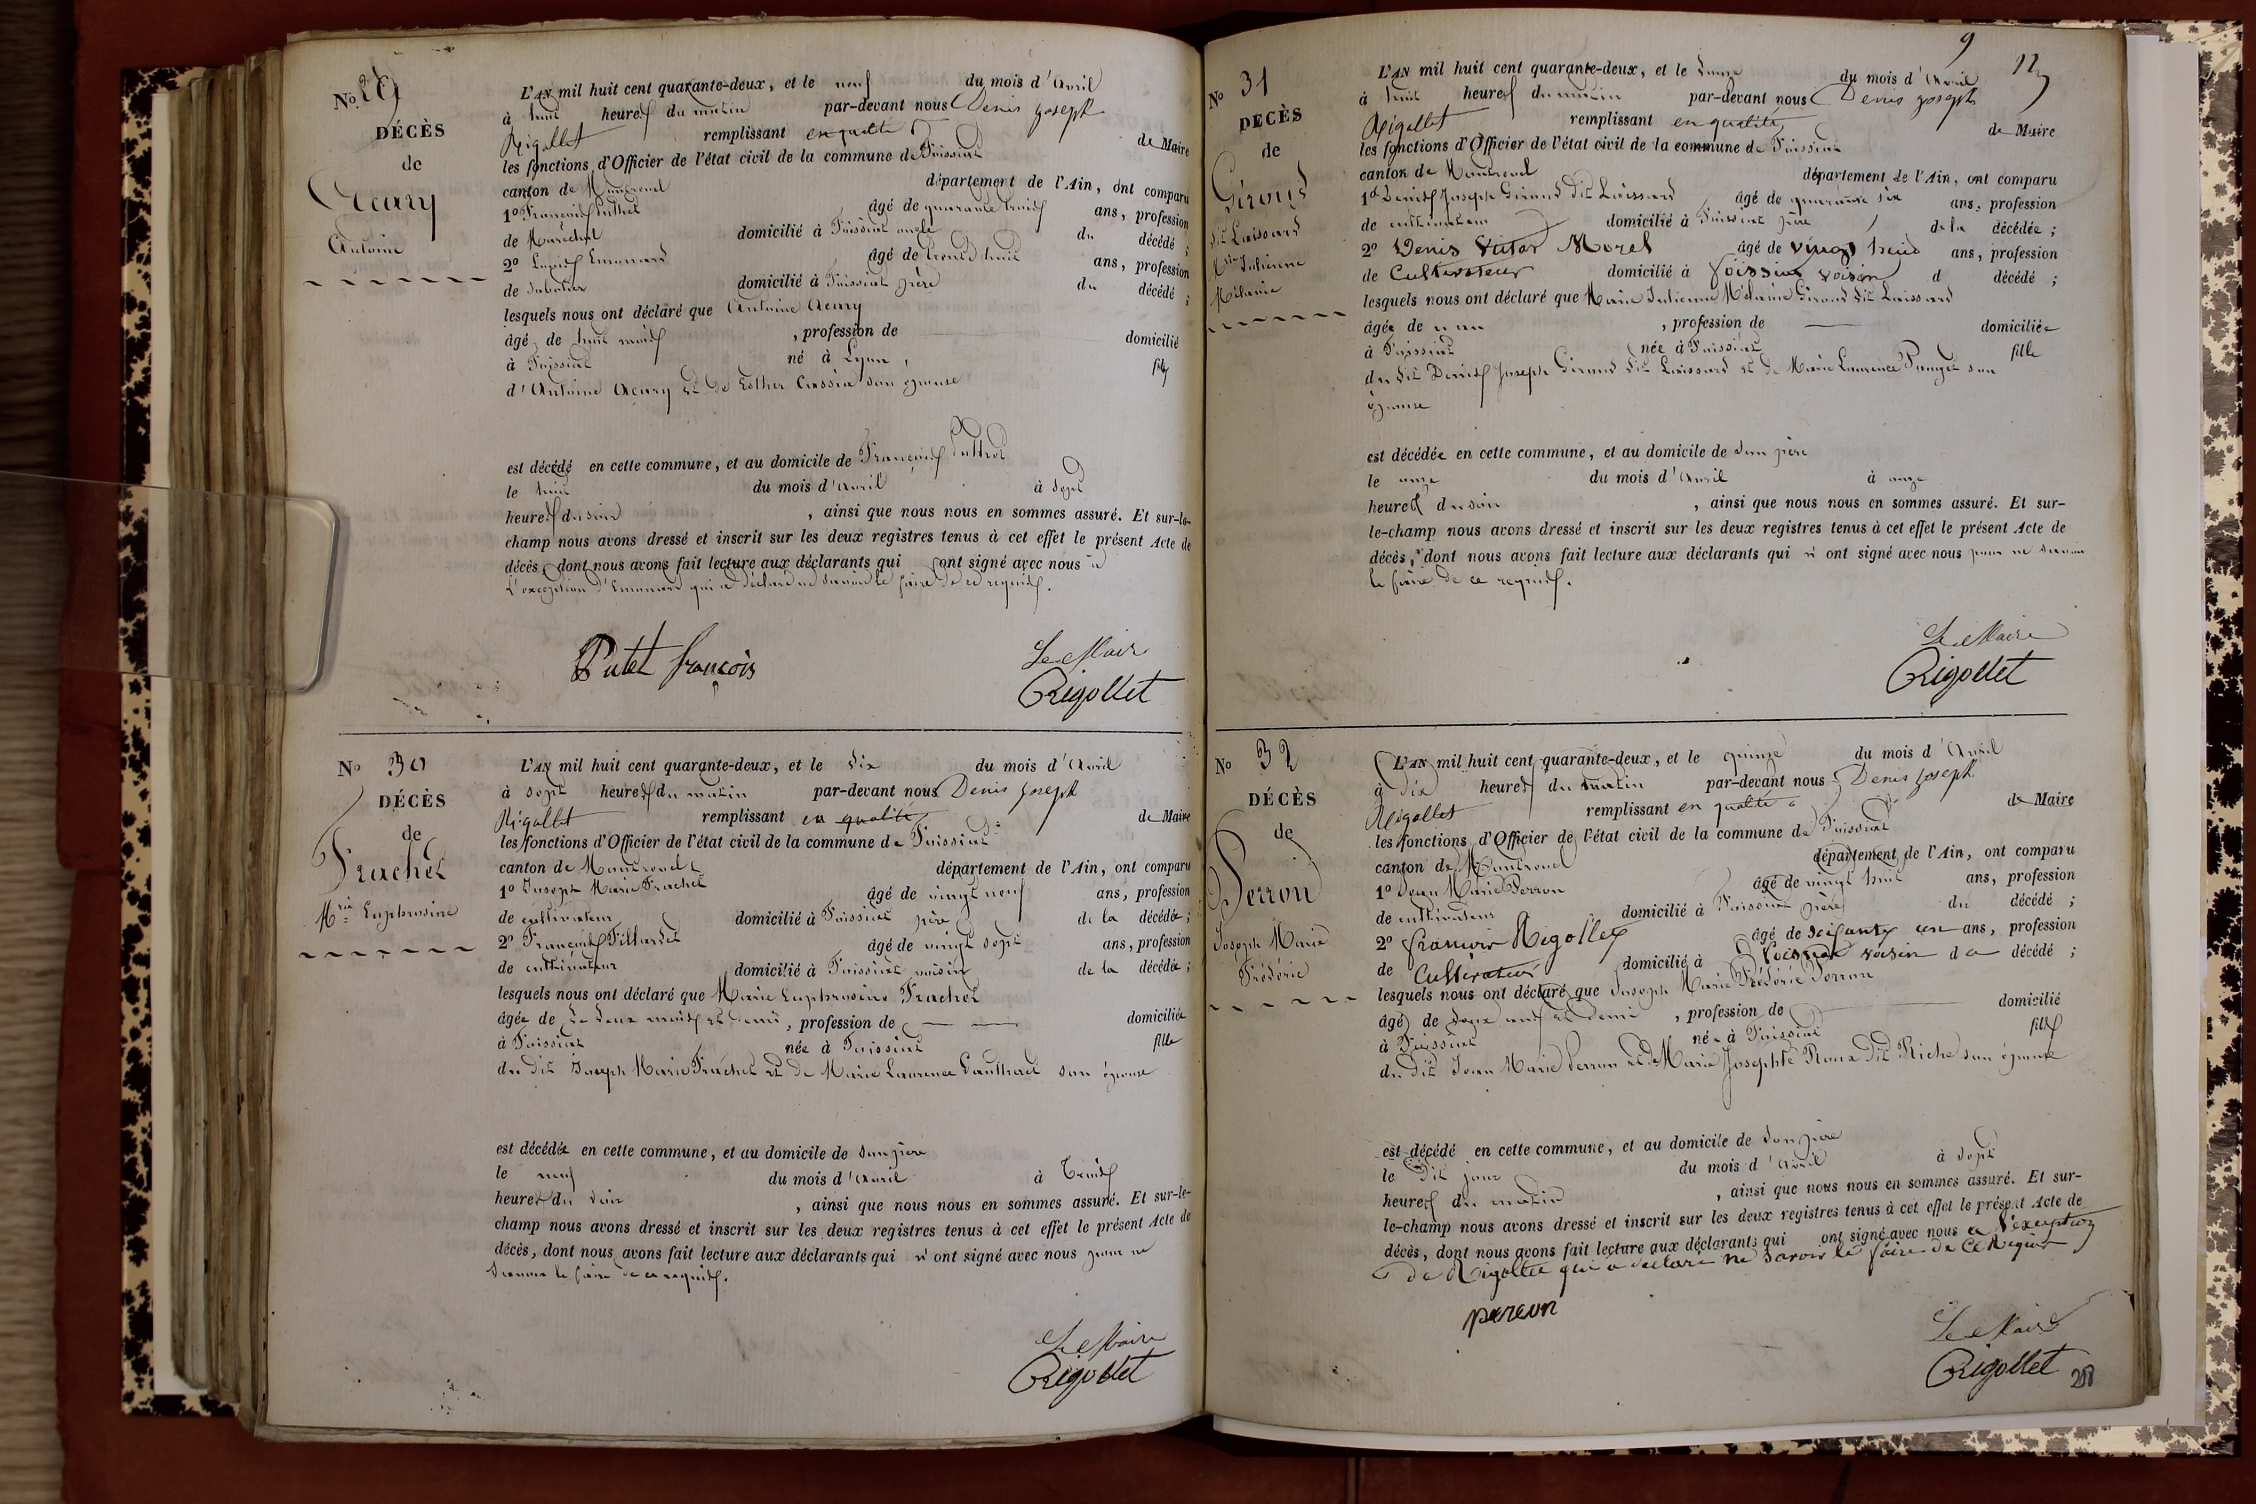 No 29
DÉCÈS
de
Acary
Antoine
L'AN mil huit cent quarante-deux, et le neuf du mois d'Avril
à huit heures du matin par-devant nous Denis Joseph
Rigollet remplissant en qualité de Maire
les fonctions d'Officier de l'état civil de la commune de Foissiat
canton de Montrevel département de l'Ain, ont comparu
1o François Puthet âgé de quarante trois ans, profession
de Maréchal domicilié à Foissiat oncle du décédé ;
2o Louis Emmanuel âgé de trente huit ans, profession
de Sabotier domicilié à Foissiat père du décédé ;
lesquels nous ont déclaré que Antoine Acary
âgé de huit mois , profession de domicilié
à Foissiat né à Lyon , fils
d'Antoine Acary et de Esther son épouse
est décédé en cette commune, et au domicile de François Puthet
le huit du mois d'Avril à sept
heures du soir , ainsi que nous nous en sommes assuré. Et sur-le-
champ nous avons dressé et inscrit sur les deux registres tenus à cet effet le présent Acte de
décès, dont nous avons fait lecture aux déclarants qui ont signé avec nous à
l'exception d' qui a déclaré ne savoir le faire de ce requis.
Putet françois
Le Maire
Rigollet
No 30
DÉCÈS
de
Frachet
Mrie Euphrosine
L'AN mil huit cent quarante-deux, et le dix du mois d'Avril
à sept heures du matin par-devant nous Denis Joseph
Rigollet remplissant en qualité de Maire
les fonctions d'Officier de l'état civil de la commune de Foissiat
canton de Montrevel département de l'Ain, ont comparu
1o Joseph Marie Frachet âgé de vingt neuf ans, profession
de cultivateur domicilié à Foissiat père de la décédée ;
2o François âgé de vingt sept ans, profession
de cultivateur domicilié à Foissiat voisin de la décédée ;
lesquels nous ont déclaré que Marie Euphrosine Frachet
âgée de deux mois et demi , profession de domiciliée
à Foissiat née à Foissiat fille
du dit Joseph Marie Frachet et de Marie Laurence Gautheret son épouse
est décédée en cette commune, et au domicile de son père
le neuf du mois d'Avril à trois
heures du soir , ainsi que nous nous en sommes assuré. Et sur-le-
champ nous avons dressé et inscrit sur les deux registres tenus à cet effet le présent Acte de
décès, dont nous avons fait lecture aux déclarants qui n'ont signé avec nous pour ne
savoir le faire de ce requis.
Le Maire
Rigollet
9
No 31
DÉCÈS
de
Giroud
dit Loissard
Mrie Julienne
Mélanie
L'AN mil huit cent quarante-deux, et le douze du mois d'Avril
à huit heures du matin par-devant nous Denis Joseph
Rigollet remplissant en qualité de Maire
les fonctions d'Officier de l'état civil de la commune de Foissiat
canton de Montrevel département de l'Ain, ont comparu
1o Denis Joseph Giroud dit Loissard âgé de quarante six ans, profession
de cultivateur domicilié à Foissiat père de la décédée ;
2o Denis Victor Morel âgé de vingt huit ans, profession
de Cultivateur domicilié à foissiat voisin d décédé ;
lesquels nous ont déclaré que Marie Julienne Mélanie Giroud dit Loissard
âgée de un an , profession de domiciliée
à Foissiat née à Foissiat fille
du dit Denis Joseph Giroud dit Loissard et de Marie Laurence son
épouse
est décédée en cette commune, et au domicile de son père
le onze du mois d'Avril à onze
heures du soir , ainsi que nous nous en sommes assuré. Et sur-
le-champ nous avons dressé et inscrit sur les deux registres tenus à cet effet le présent Acte de
décès, dont nous avons fait lecture aux déclarants qui n'ont signé avec nous pour ne savoir
le faire de ce requis.
Le Maire
Rigollet
No 32
DÉCÈS
de
Perron
Joseph Marie
Frédéric
L'AN mil huit cent quarante-deux, et le quinze du mois d'Avril
à dix heures du matin par-devant nous Denis Joseph
Rigollet remplissant en qualité de Maire
les fonctions d'Officier de l'état civil de la commune de Foissiat
canton de Montrevel département de l'Ain, ont comparu
1o Jean Marie Perron âgé de vingt huit ans, profession
de cultivateur domicilié à Foissiat père du décédé ;
2o francois Rigollet âgé de soixante un ans, profession
de Cultivateur domicilié à foissiat voisin du décédé ;
lesquels nous ont déclaré que Joseph Marie Frédéric Perron
âgé de deux ans et demi , profession de domicilié
à Foissiat né à Foissiat fils
du dit Jean Marie Perron et de Marie Josephte Roux dit Riche son épouse
est décédé en cette commune, et au domicile de son père
le dit jour du mois d'Avril à sept
heures du matin , ainsi que nous nous en sommes assuré. Et sur-
le-champ nous avons dressé et inscrit sur les deux registres tenus à cet effet le présent Acte de
décès, dont nous avons fait lecture aux déclarants qui ont signé avec nous a l'exception
de Rigollet qui a declare ne savoir le faire de Ce Requis
pereon
Le Maire
Rigollet